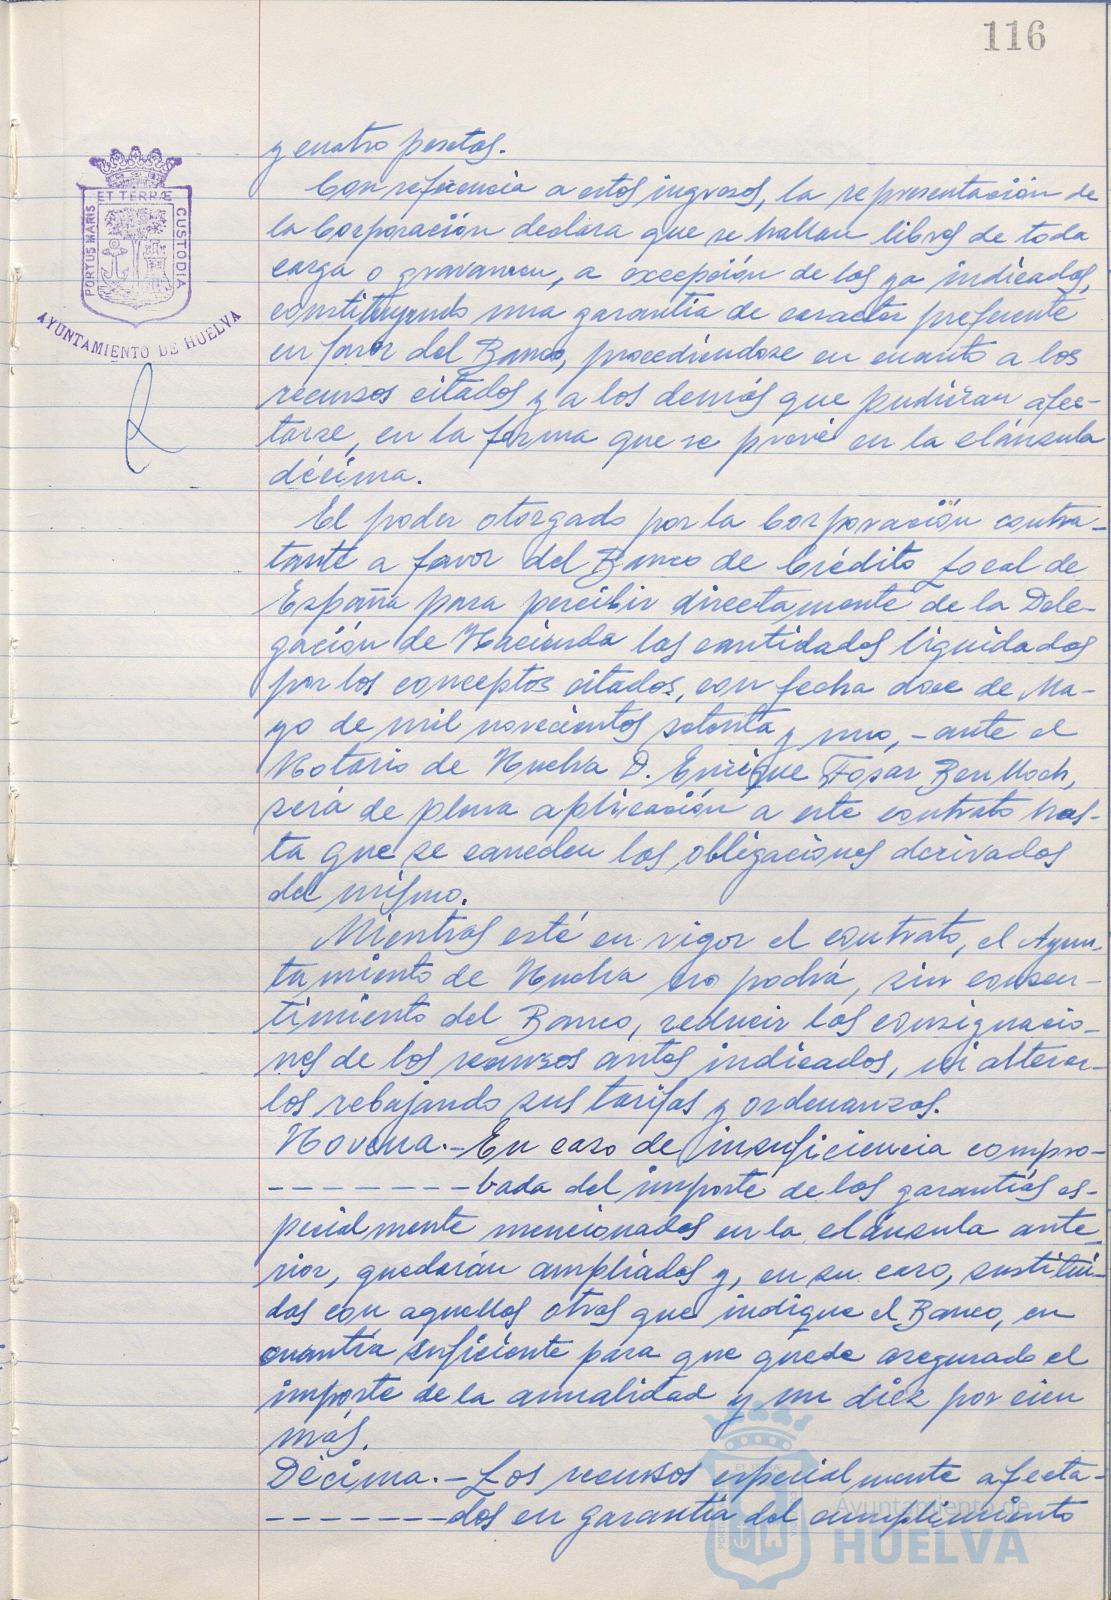 116
y cuatro pesetas.
Con referencia a estos ingresos, la representación de
la Corporación declara que se hallan libres de toda
carga o gravamen, a excepción de los ya indicados,
constituyendo una garantía de caracter preferente
en favor del Banco, procediendose en cuanto a los
recursos citados y a los demás que pudieran afec-
tarse, en la forma que se prevé en la cláusula
décima.
El poder otorgado por la Corporación contra-
tante a favor del Banco de Crédito Local de
España para percibir directamente de la Dele-
gación de Hacienda las cantidades liquidadas
por los conceptos citados, con fecha doce de Ma-
yo de mil novecientos setenta y uno, - ante el
Notario de Huelva D. Enrique Fosar Benlloch,
será de plena aplicación a este contrato has-
ta que se cancelen las obligaciones derivadas
del mismo.
Mientras esté en vigor el contrato, el Ayun-
tamiento de Huelva no podrá, sin consen-
timiento del Banco, reducir las consignacio-
nes de los recursos antes indicados, ni alterar-
los rebajando sus tarifas y ordenanzas.
Novena.- En caso de insuficiencia compro-
- - - - - - - bada del importe de las garantías es-
pecialmente mencionadas en la cláusula ante-
rior, quedarán ampliadas y, en su caso, sustitui-
das con aquellas otras que indique el Banco, en
cuantía suficiente para que quede asegurado el
importe de la anualidad y un diez por cien
más.
Décima.- Los recursos especialmente afecta-
- - - - - - - dos en garantía del cumplimiento
ET TERRÆ
PORTUS MARIS
CUSTODIA
AYUNTAMIENTO DE HUELVA
Ayuntamiento de
HUELVA